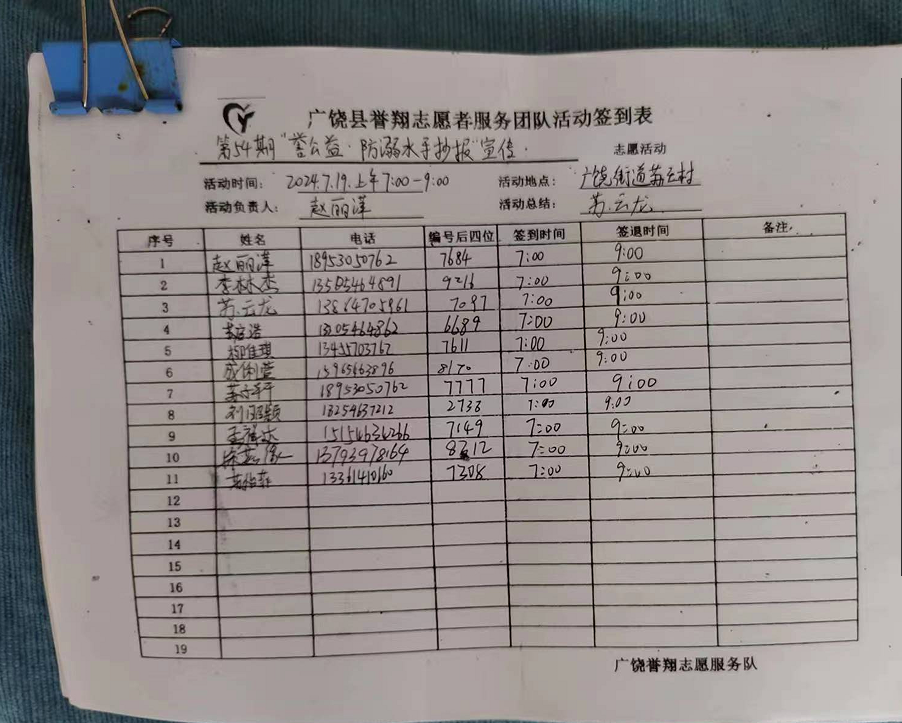 广饶县誉翔志愿者服务团队活动签到表
第54期"誉公益·防溺水手抄报"宣传· 志愿活动
活动时间: 2024.7.19.上午7:00-9:00 活动地点: 广饶街道苏云村
活动负责人: 赵丽萍 活动总结: 苏云龙
序号 姓名 电话 编号后四位 签到时间 签退时间 备注
1 赵丽萍 18953050762 7684 7:00 9:00
2 李林杰 13505464891 9216 7:00 9:00
3 苏云龙 13864705961 7097 7:00 9:00
4 6689 7:00 9:00
5 13455703762 7611 7:00 9:00
6 8170 7:00 9:00
7 18953050762 7777 7:00 9:00
8 13254637212 2738 7:00 9:00
9 15154636266 7149 7:00 9:00
10 13793978164 8312 7:00 9:00
11 13361410160 7308 7:00 9:00
12
13
14
15
16
17
18
19
广饶誉翔志愿服务队